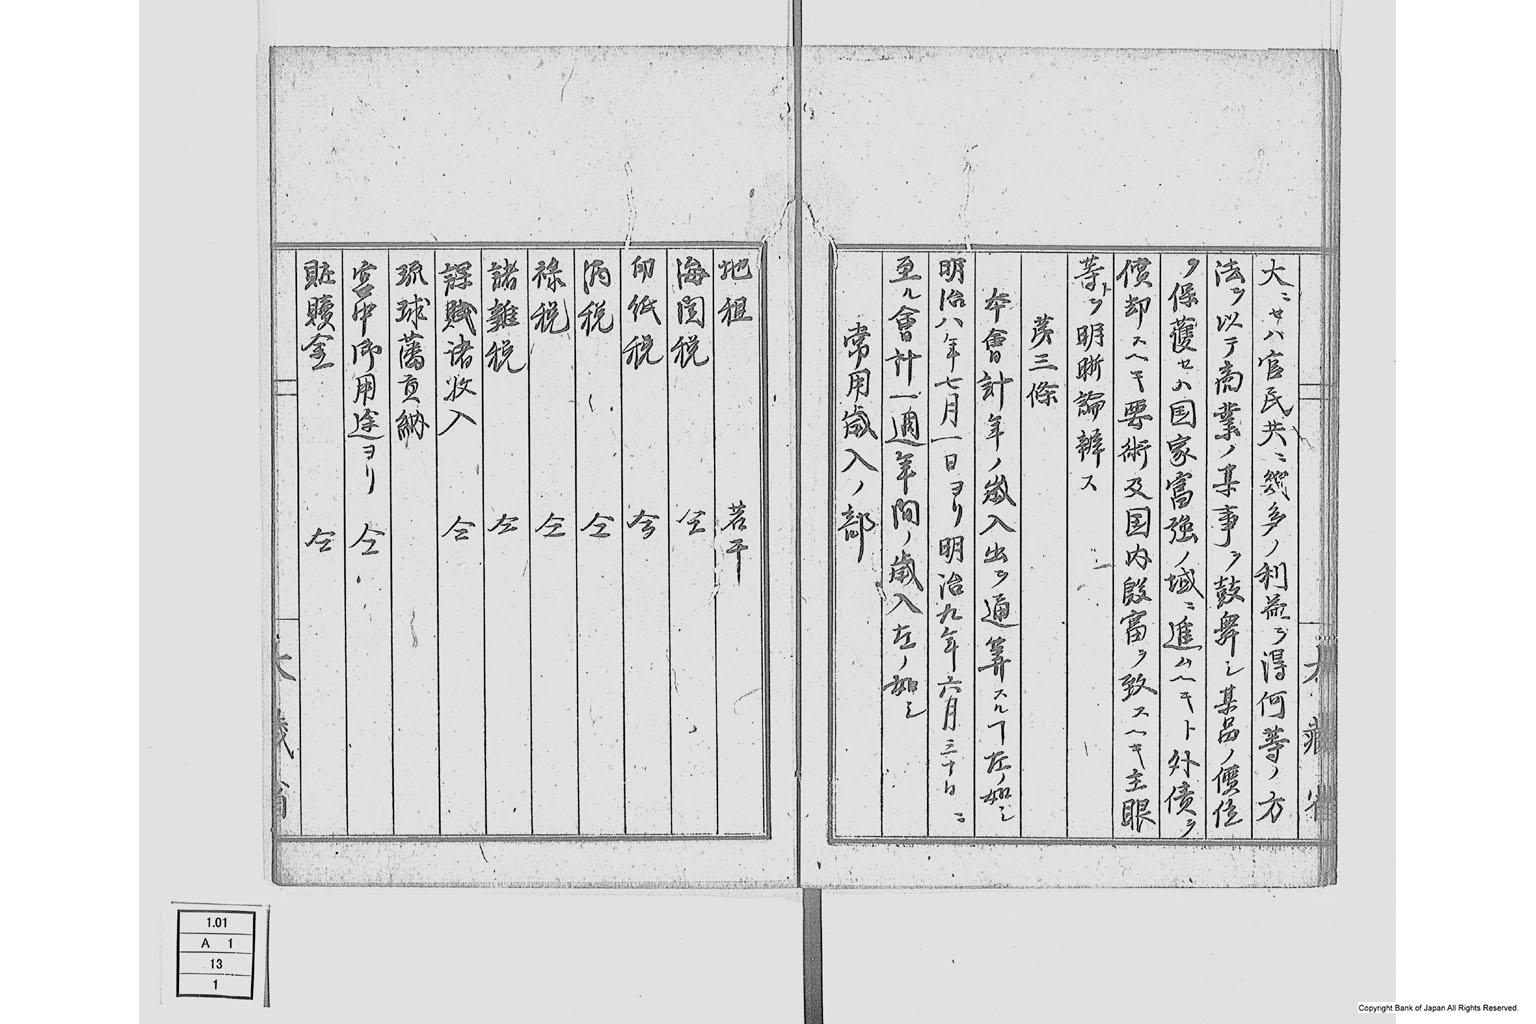 大ニセハ官民共ニ幾多ノ利益ヲ得何等ノ方
法ヲ以テ商業ノ某事ヲ鼓舞シ某品ノ價位
ヲ保護セハ国家富強ノ域ニ進ムヘキト外債ヲ
償却スヘキ要術及国内殷富ヲ致スヘキ主眼
等トヲ明晰論辨ス
第三條
本會計年ノ歳入出ヲ通算スルヿ左ノ如シ
明治八年七月一日ヨリ明治九年六月三十日ニ
至ル會計一週年間ノ歳入左ノ如シ
常用歳入ノ部
大藏省
地租 若干
海関税 仝
印紙税 仝
酒税 仝
禄税 仝
諸雜税 仝
課賦諸收入 仝
琉球藩貢納
宮中御用途ヨリ 仝
贓贖金 仝
大藏省
1.01
A 1
13
1
Copyright Bank of Japan All Rights Reserved.